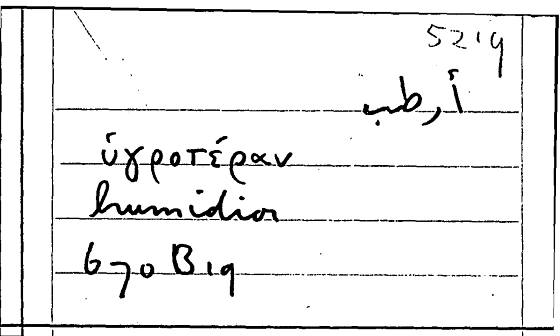 5219
أرطب
ὑγροτέραν
humidior
670 B 19